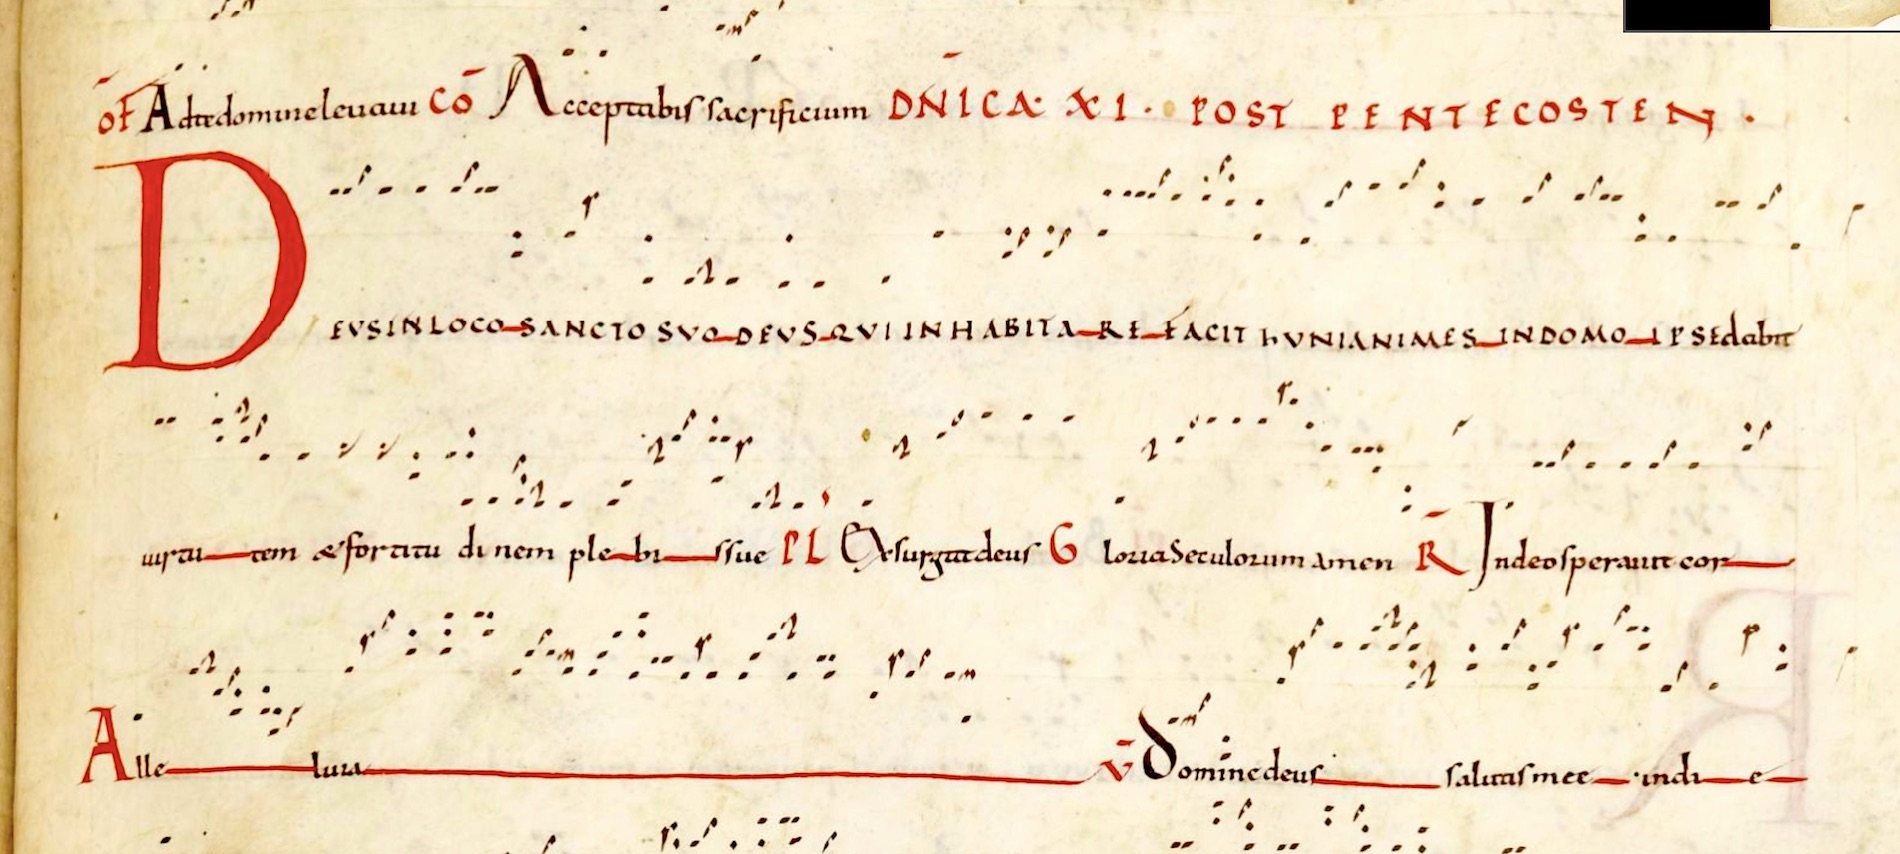 OF Adtedomineleuaui CO Acceptabis sacrificium DNICA XI. POST PENTECOSTEN.
DEUS IN LOCO SANCTO SUO DEUS QUI INHABITARE FACIT hUNIANIMES IN DOMO IPSE dabit
uirtutem & fortitudinem plebi ssue PL Exsurgat deus G loria Seculorum amen R In deo sperauit cor
Alleluia V Domine deus salutas mee indie